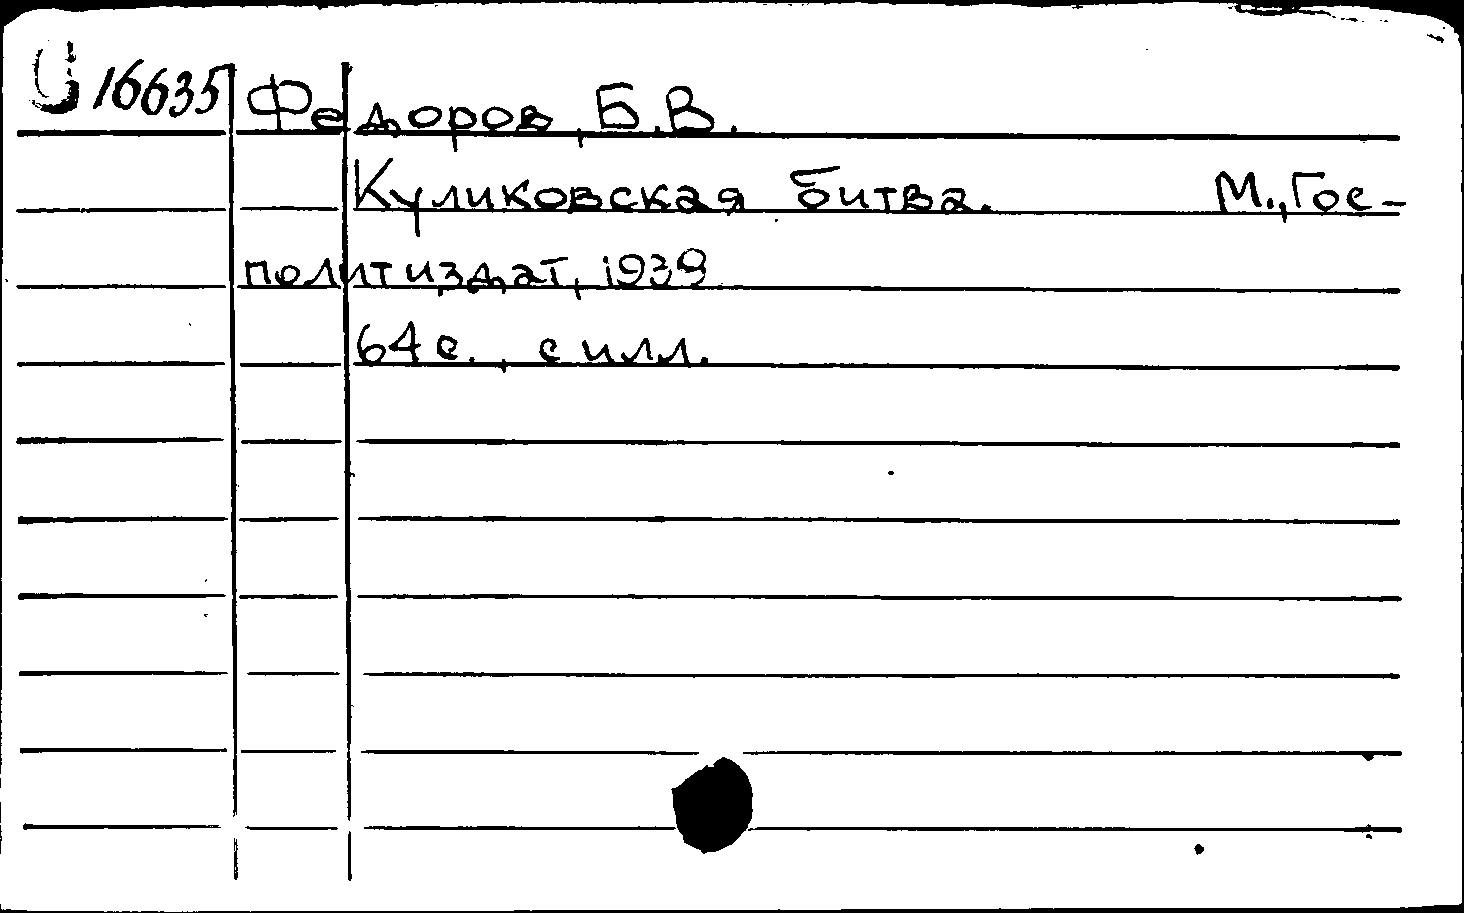 16635 Федоров, Б.В.
Куликовская битва. М., Гос-
политиздат, 1939
64 с., с илл.